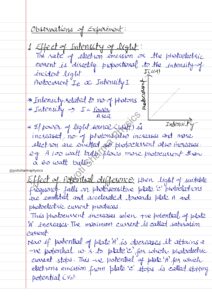 Observations of Experiment
1 Effect of Intensity of light
The rate of electron emission or the photoelectric
current is directly proportional to the intensity of
incident light
Photocurrent Ic ∝ Intensity I
* Intensity related to no of photons
* Intensity → I = Power
Area
Photocurrent
Intensity
* If power of light source is
increased no of photons also increase and more
electron are emitted so photocurrent also increases
e.g. A 100 watt bulb glows more photocurrent than
a 60 watt bulb
@potishalmaphysics
Effect of Potential difference: When light of suitable
frequency falls on photosensitive plate 'C' photoelectrons
are emitted and accelerated towards plate A and
photoelectric current produces
This photocurrent increases when +ve potential of plate
'A' increases The maximum current is called saturation
current
Now if potential of plate 'A' is decreases it attains a
-ve potential w.r. to plate 'C' for which photoelectric
current stops. This -ve potential of plate 'A' for which
electrons emission from plate 'C' stops is called stopping
potential (V₀)